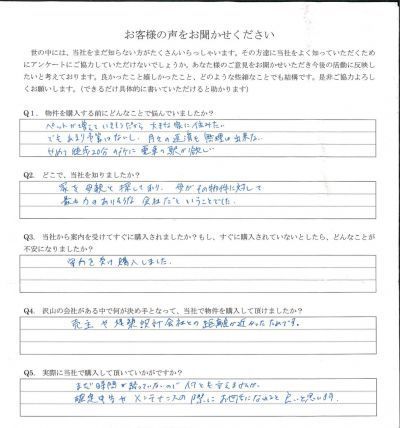 お客様の声をお聞かせください
世の中には、当社をまだ知らない方がたくさんいらっしゃいます。その方達に当社をよく知っていただくため
にアンケートにご協力していただけないでしょうか。あなた様のご意見をお聞かせいただき今後の活動に反映し
たいと考えております。良かったこと嬉しかったこと、どのような些細なことでも結構です。是非ご協力よろし
くお願いします。(できるだけ具体的に書いていただけると助かります)
Q1. 物件を購入する前にどんなことで悩んでいましたか?
ペットが増えて 大きな家に住みたい
でもあまり予算はないし、月々の返済も無理は出来ない
せめて徒歩20分 の所に電車の駅が欲しい
Q2. どこで、当社を知りましたか?
家を母親と探しており、母がその物件に対して
会社だということでした。
Q3. 当社から案内を受けてすぐに購入されましたか?もし、すぐに購入されていないとしたら、どんなことが
不安になりましたか?
案内を受け購入しました。
Q4. 沢山の会社がある中で何が決め手となって、当社で物件を購入して頂けましたか?
売主や 会社との距離が近かったためです。
Q5. 実際に当社で購入して頂いていかがですか?
まだ時間が経っていないので何とも言えませんが、
確定申告やメンテナンスの際にお世話になれると良いと思います。